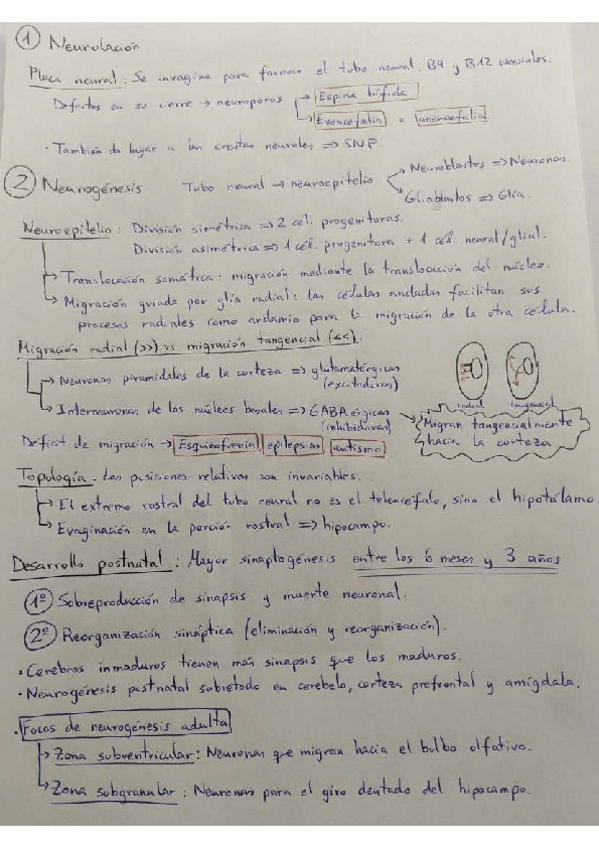 ① Neurulación
Placa neural: Se invagina para formar el tubo neural. B9 y B12 esenciales.
Defectos en su cierre → neuroporos → Espina bífida
→ Exencefalia o anencefalia
· También da lugar a las crestas neurales ⇒ SNP.
② Neurogénesis Tubo neural → neuroepitelio → Neuroblastos ⇒ Neuronas.
→ Glioblastos ⇒ Glía.
Neuroepitelio: División simétrica ⇒ 2 cél. progenitoras.
División asimétrica ⇒ 1 cél. progenitora + 1 cél. neural/glial.
→ Translocación somática: migración mediante la translocación del núcleo.
→ Migración guiada por glía radial: las células ancladas facilitan sus
procesos radiales como andamio para la migración de la otra célula.
Migración radial (>>) vs migración tangencial (<<).
→ Neuronas piramidales de la corteza ⇒ glutamatérgicas
(excitadoras)
radial tangencial
→ Interneuronas de los núcleos basales ⇒ GABAérgicas
(inhibidoras)
→ Migran tangencialmente
hacia la corteza
Déficit de migración → Esquizofrenia epilepsias autismo
Topología. Las posiciones relativas son invariables.
→ El extremo rostral del tubo neural no es el telencéfalo, sino el hipotálamo
→ Evaginación en la porción rostral ⇒ hipocampo.
Desarrollo postnatal: Mayor sinaptogénesis entre los 6 meses y 3 años
1º Sobreproducción de sinapsis y muerte neuronal.
2º Reorganización sináptica (eliminación y reorganización).
· Cerebros inmaduros tienen más sinapsis que los maduros.
· Neurogénesis postnatal sobretodo en cerebelo, corteza prefrontal y amígdala.
· Focos de neurogénesis adulta
→ Zona subventricular: Neuronas que migran hacia el bulbo olfativo.
→ Zona subgranular: Neuronas para el giro dentado del hipocampo.